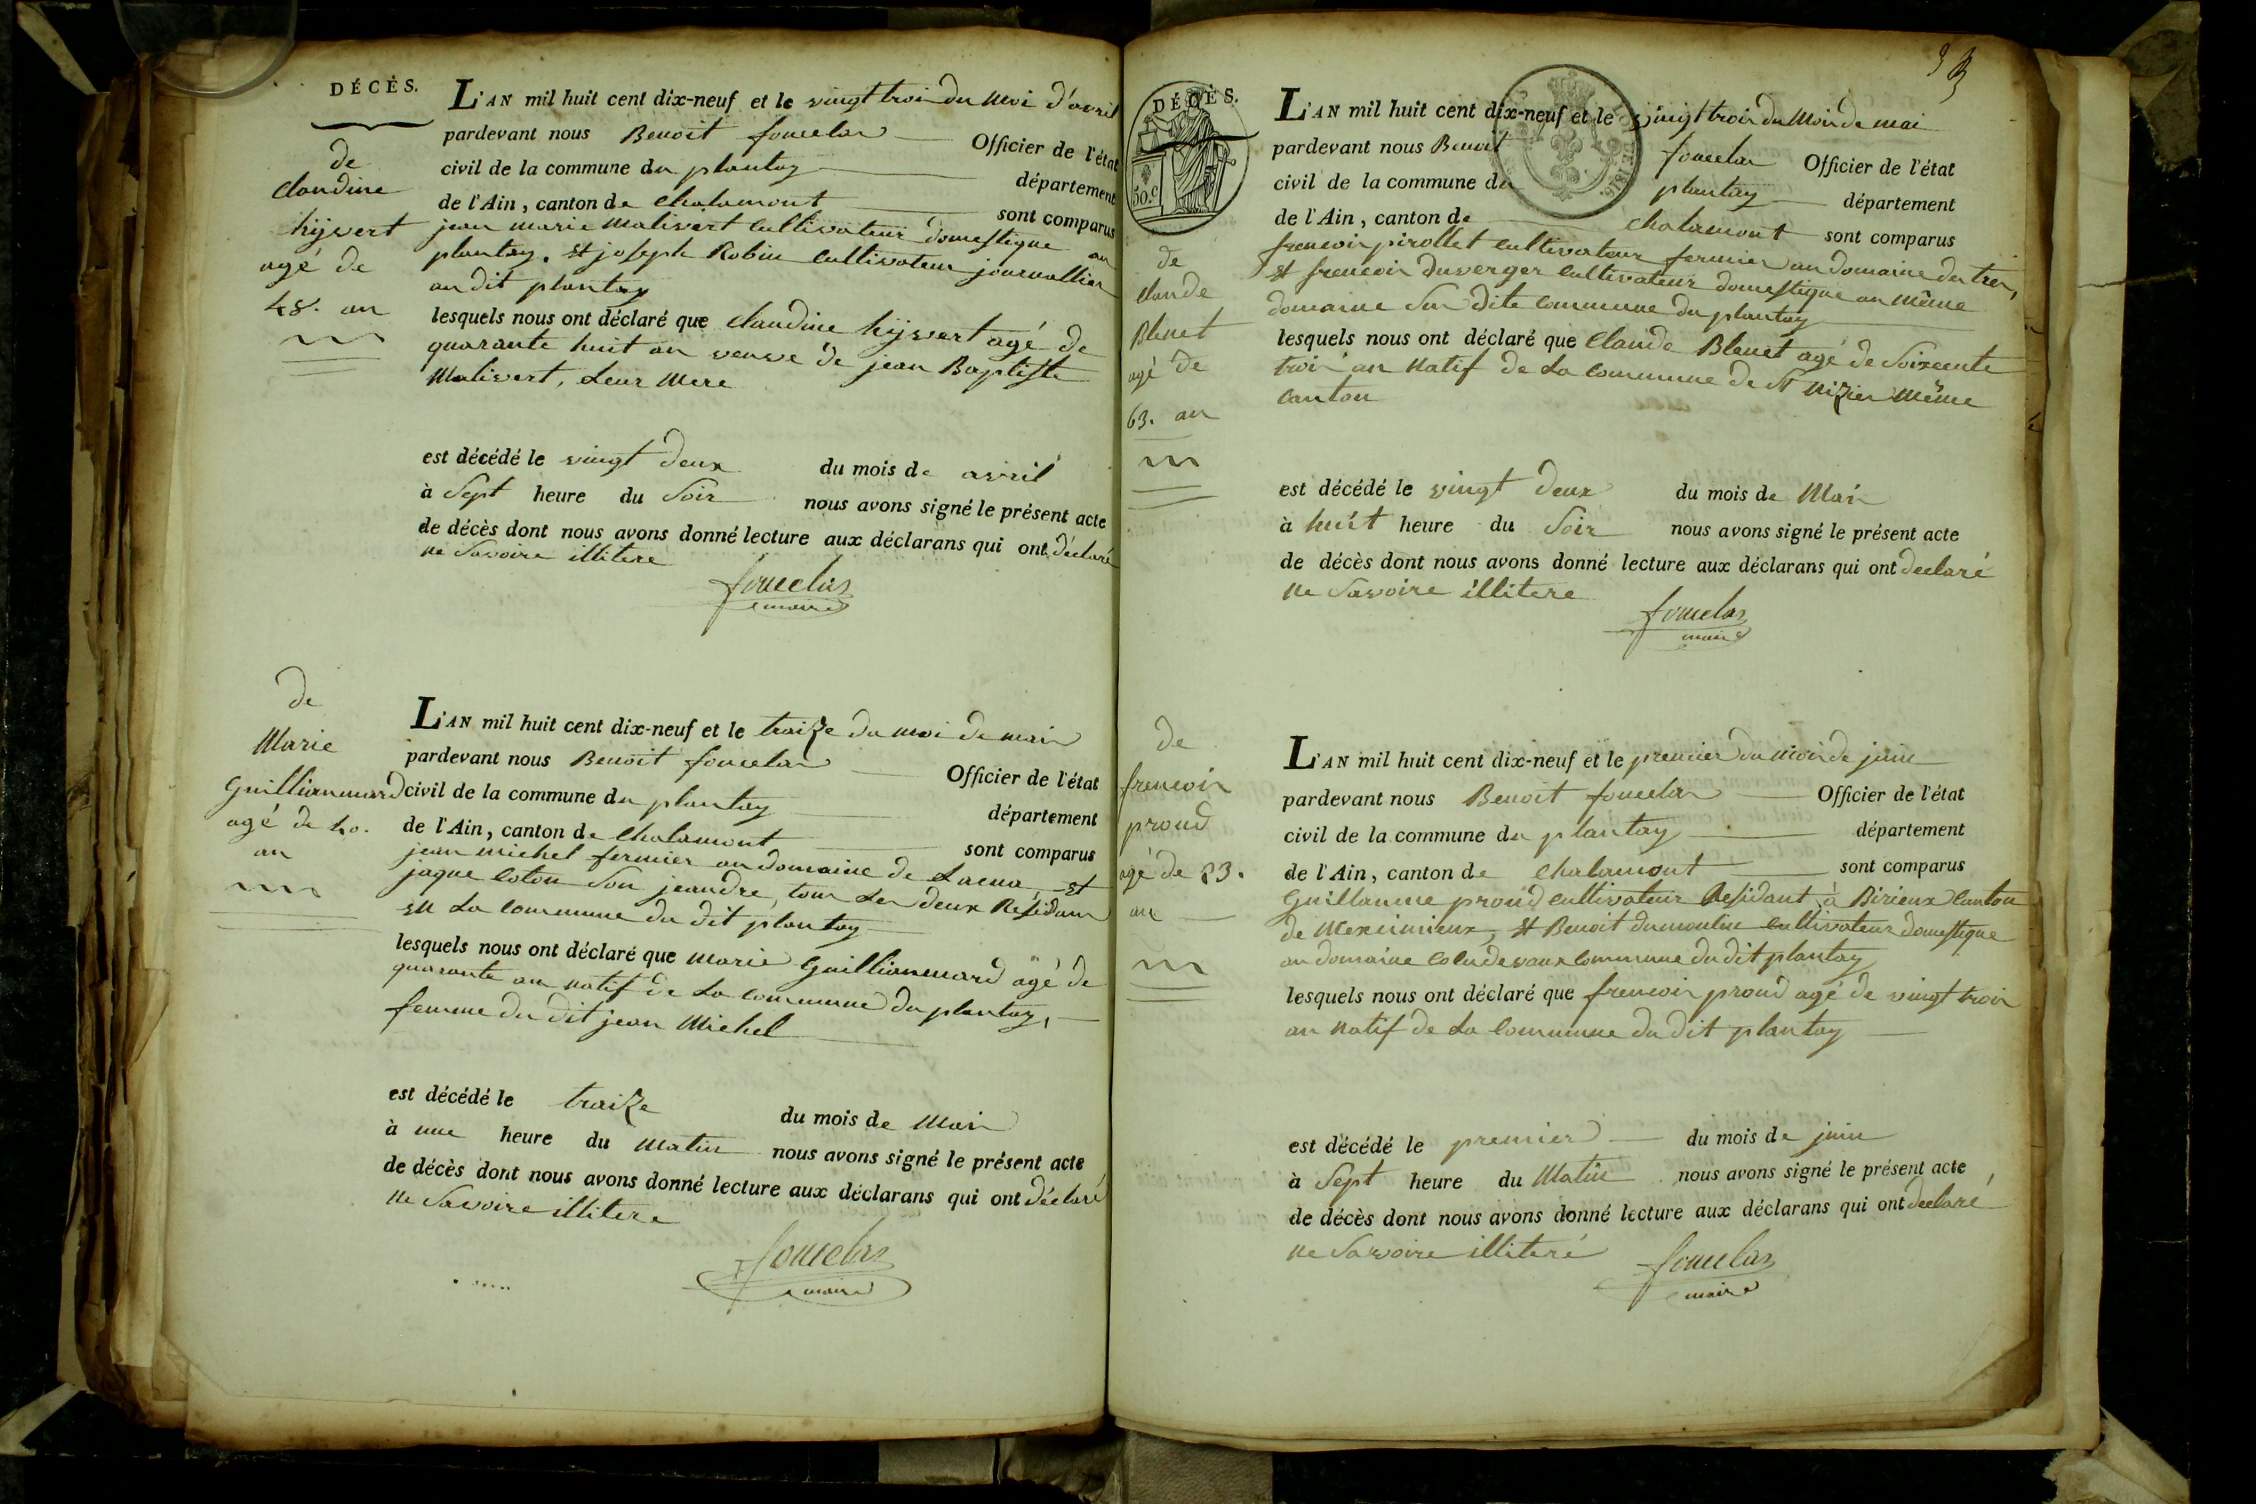 DÉCÈS.
de
Claudine
hyvert
agé de
48. an
L'AN mil huit cent dix-neuf et le vingt troi du moi d'avril
pardevant nous Benoit fouclas Officier de l'état
civil de la commune du plantay département
de l'Ain, canton de Chalamont sont comparus
jean marie Malivert cultivateur domestique au
plantay. et joseph Robin cultivateur journallier
au dit plantay
lesquels nous ont déclaré que Claudine hyvert agé de
quarante huit an veuve de jean Baptiste
Malivert, Leur Mere
est décédé le vingt deux du mois de avril
à Sept heure du Soir nous avons signé le présent acte
de décès dont nous avons donné lecture aux déclarans qui ont déclaré
ne Savoire illitere
fouclas
maire
de
Marie
Guillianmard
agé de 40.
an
L'AN mil huit cent dix-neuf et le traize du moi de mai
pardevant nous Benoit fouclas Officier de l'état
civil de la commune du plantay département
de l'Ain, canton de Chalamont sont comparus
jean michel fermier au domaine de et
jaque Coton Son jeandre, tous Les deux Residans
en La Commune du dit plantay
lesquels nous ont déclaré que Marie Guillianmard agé de
quarante an natif de La commune du plantay,
femme du dit jean Michel
est décédé le traize du mois de Mai
à une heure du Matin nous avons signé le présent acte
de décès dont nous avons donné lecture aux déclarans qui ont déclaré
ne Savoire illitere
fouclas
maire
33
DÉCÈS.
50.c
LOI DE 1816.
de
Claude
Bluet
agé de
63. an
L'AN mil huit cent dix-neuf et le vingt trois du Mois de mai
pardevant nous Benoit fouclas Officier de l'état
civil de la commune du plantay département
de l'Ain, canton de Chalamont sont comparus
frencois pirollet cultivateur fermier au domaine du
et frencoi Duverger cultivateur domestique au même
domaine Sur dite commune du plantay
lesquels nous ont déclaré que Claude Bluet agé de Soixcente
troi an Natif de La Commune de St Nizier même
Canton
est décédé le vingt deux du mois de Mai
à huit heure du Soir nous avons signé le présent acte
de décès dont nous avons donné lecture aux déclarans qui ont declaré
ne Savoire illitere
fouclas
maire
de
frencoir
proud
agé de 23.
an
L'AN mil huit cent dix-neuf et le premier du Mois de juin
pardevant nous Benoit fouclas Officier de l'état
civil de la commune du plantay département
de l'Ain, canton de Chalamont sont comparus
Guillaume proud cultivateur Residant à Birieux Canton
de Meximieux, et Benoit dumoulin cultivateur domestique
au domaine commune du dit plantay
lesquels nous ont déclaré que frencoir proud agé de vingt trois
an Natif de La Commune du dit plantay
est décédé le premier du mois de juin
à Sept heure du Matin nous avons signé le présent acte
de décès dont nous avons donné lecture aux déclarans qui ont declaré
ne Savoire illiteré
fouclas
maire